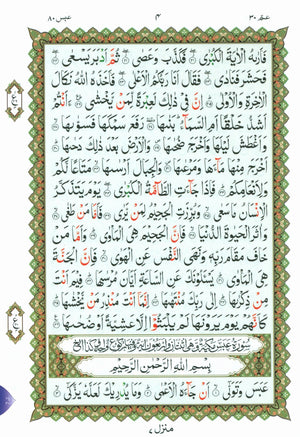 عم ٣٠ ٤ عبس ٨٠
فَاَرٰىهُ الْاٰيَةَ الْكُبْرٰى ۝ فَكَذَّبَ وَعَصٰى ۝ ثُمَّ اَدْبَرَ يَسْعٰى ۝
فَحَشَرَ فَنَادٰى ۝ فَقَالَ اَنَا رَبُّكُمُ الْاَعْلٰى ۝ فَاَخَذَهُ اللّٰهُ نَكَالَ
الْاٰخِرَةِ وَالْاُوْلٰى ۝ اِنَّ فِيْ ذٰلِكَ لَعِبْرَةً لِّمَنْ يَّخْشٰى ۝ ءَاَنْتُمْ
اَشَدُّ خَلْقًا اَمِ السَّمَآءُ بَنٰىهَا ۝ رَفَعَ سَمْكَهَا فَسَوّٰىهَا ۝
وَاَغْطَشَ لَيْلَهَا وَاَخْرَجَ ضُحٰىهَا ۝ وَالْاَرْضَ بَعْدَ ذٰلِكَ دَحٰىهَا ۝
اَخْرَجَ مِنْهَا مَآءَهَا وَمَرْعٰىهَا ۝ وَالْجِبَالَ اَرْسٰىهَا ۝ مَتَاعًا لَّكُمْ
وَلِاَنْعَامِكُمْ ۝ فَاِذَا جَآءَتِ الطَّآمَّةُ الْكُبْرٰى ۝ يَوْمَ يَتَذَكَّرُ
الْاِنْسَانُ مَا سَعٰى ۝ وَبُرِّزَتِ الْجَحِيْمُ لِمَنْ يَّرٰى ۝ فَاَمَّا مَنْ طَغٰى ۝
وَاٰثَرَ الْحَيٰوةَ الدُّنْيَا ۝ فَاِنَّ الْجَحِيْمَ هِيَ الْمَاْوٰى ۝ وَاَمَّا مَنْ
خَافَ مَقَامَ رَبِّهٖ وَنَهَى النَّفْسَ عَنِ الْهَوٰى ۝ فَاِنَّ الْجَنَّةَ
هِيَ الْمَاْوٰى ۝ يَسْـَٔلُوْنَكَ عَنِ السَّاعَةِ اَيَّانَ مُرْسٰىهَا ۝ فِيْمَ اَنْتَ
مِنْ ذِكْرٰىهَا ۝ اِلٰى رَبِّكَ مُنْتَهٰىهَا ۝ اِنَّمَآ اَنْتَ مُنْذِرُ مَنْ يَّخْشٰىهَا ۝
كَاَنَّهُمْ يَوْمَ يَرَوْنَهَا لَمْ يَلْبَثُوْٓا اِلَّا عَشِيَّةً اَوْ ضُحٰىهَا ۝
سورة عبس مكية وهي
بِسْمِ اللّٰهِ الرَّحْمٰنِ الرَّحِيْمِ
عَبَسَ وَتَوَلّٰٓى ۝ اَنْ جَآءَهُ الْاَعْمٰى ۝ وَمَا يُدْرِيْكَ لَعَلَّهٗ يَزَّكّٰٓى ۝
منزل ٧